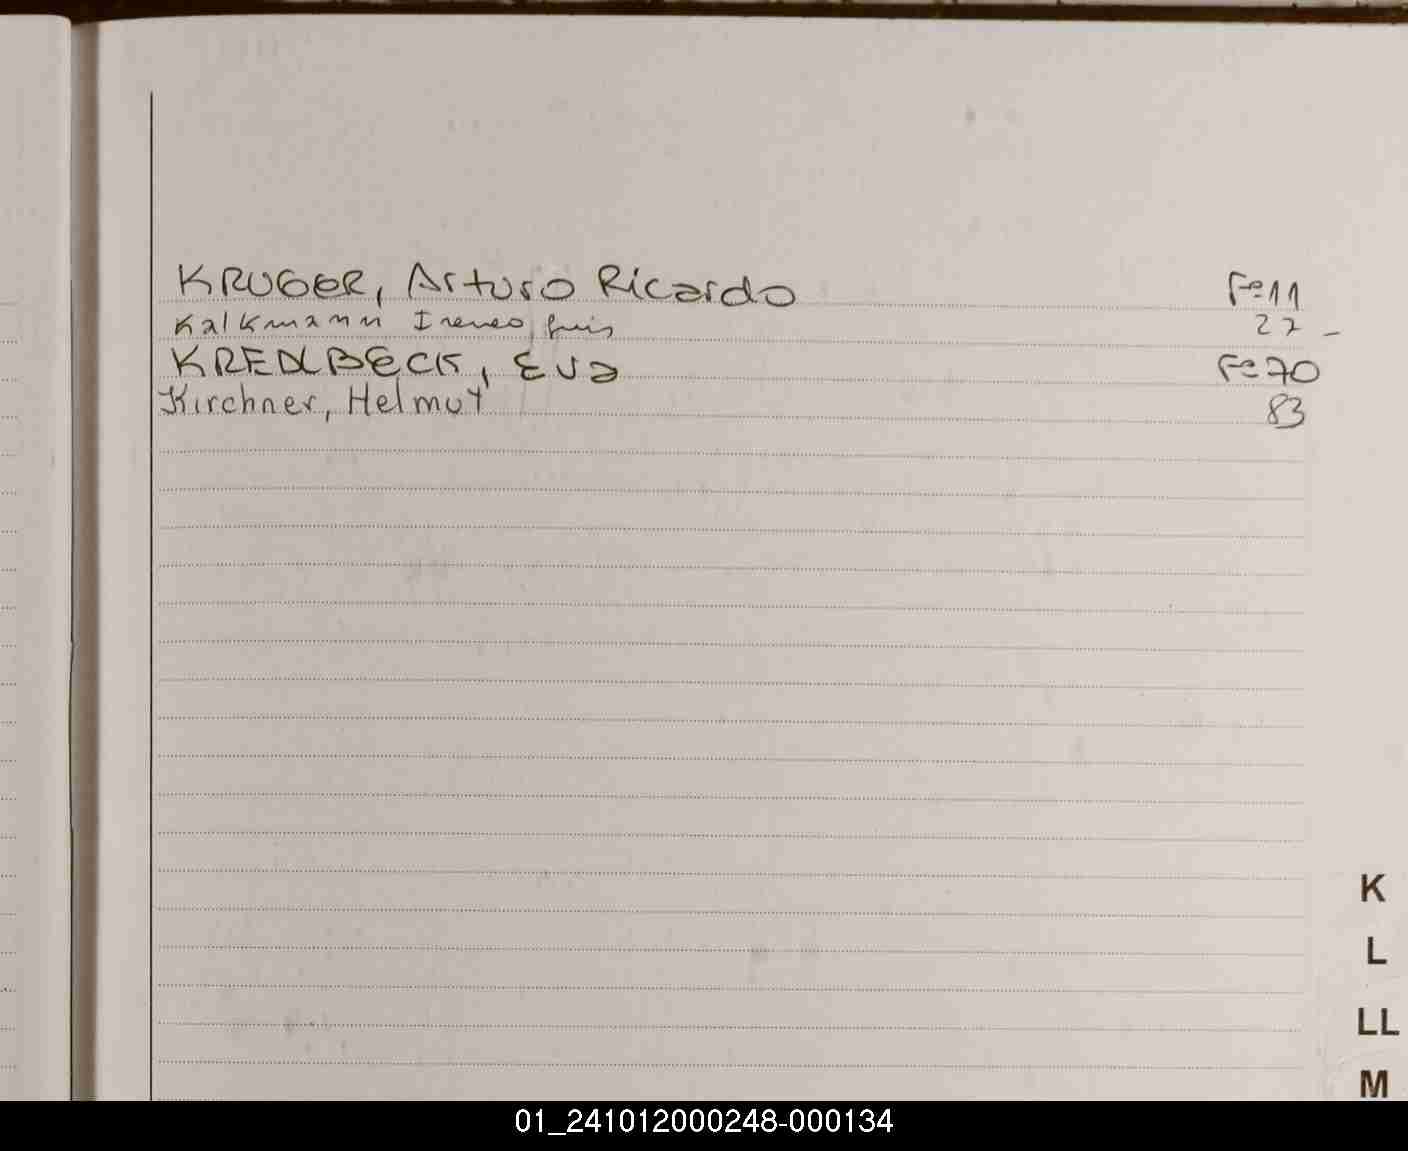 KRUGER, Arturo Ricardo Fº11
Kalkmann Ireneo Luis 27 -
KREDLBECK, Eva Fº70
Kirchner, Helmut 83
K
L
LL
M
01_241012000248-000134